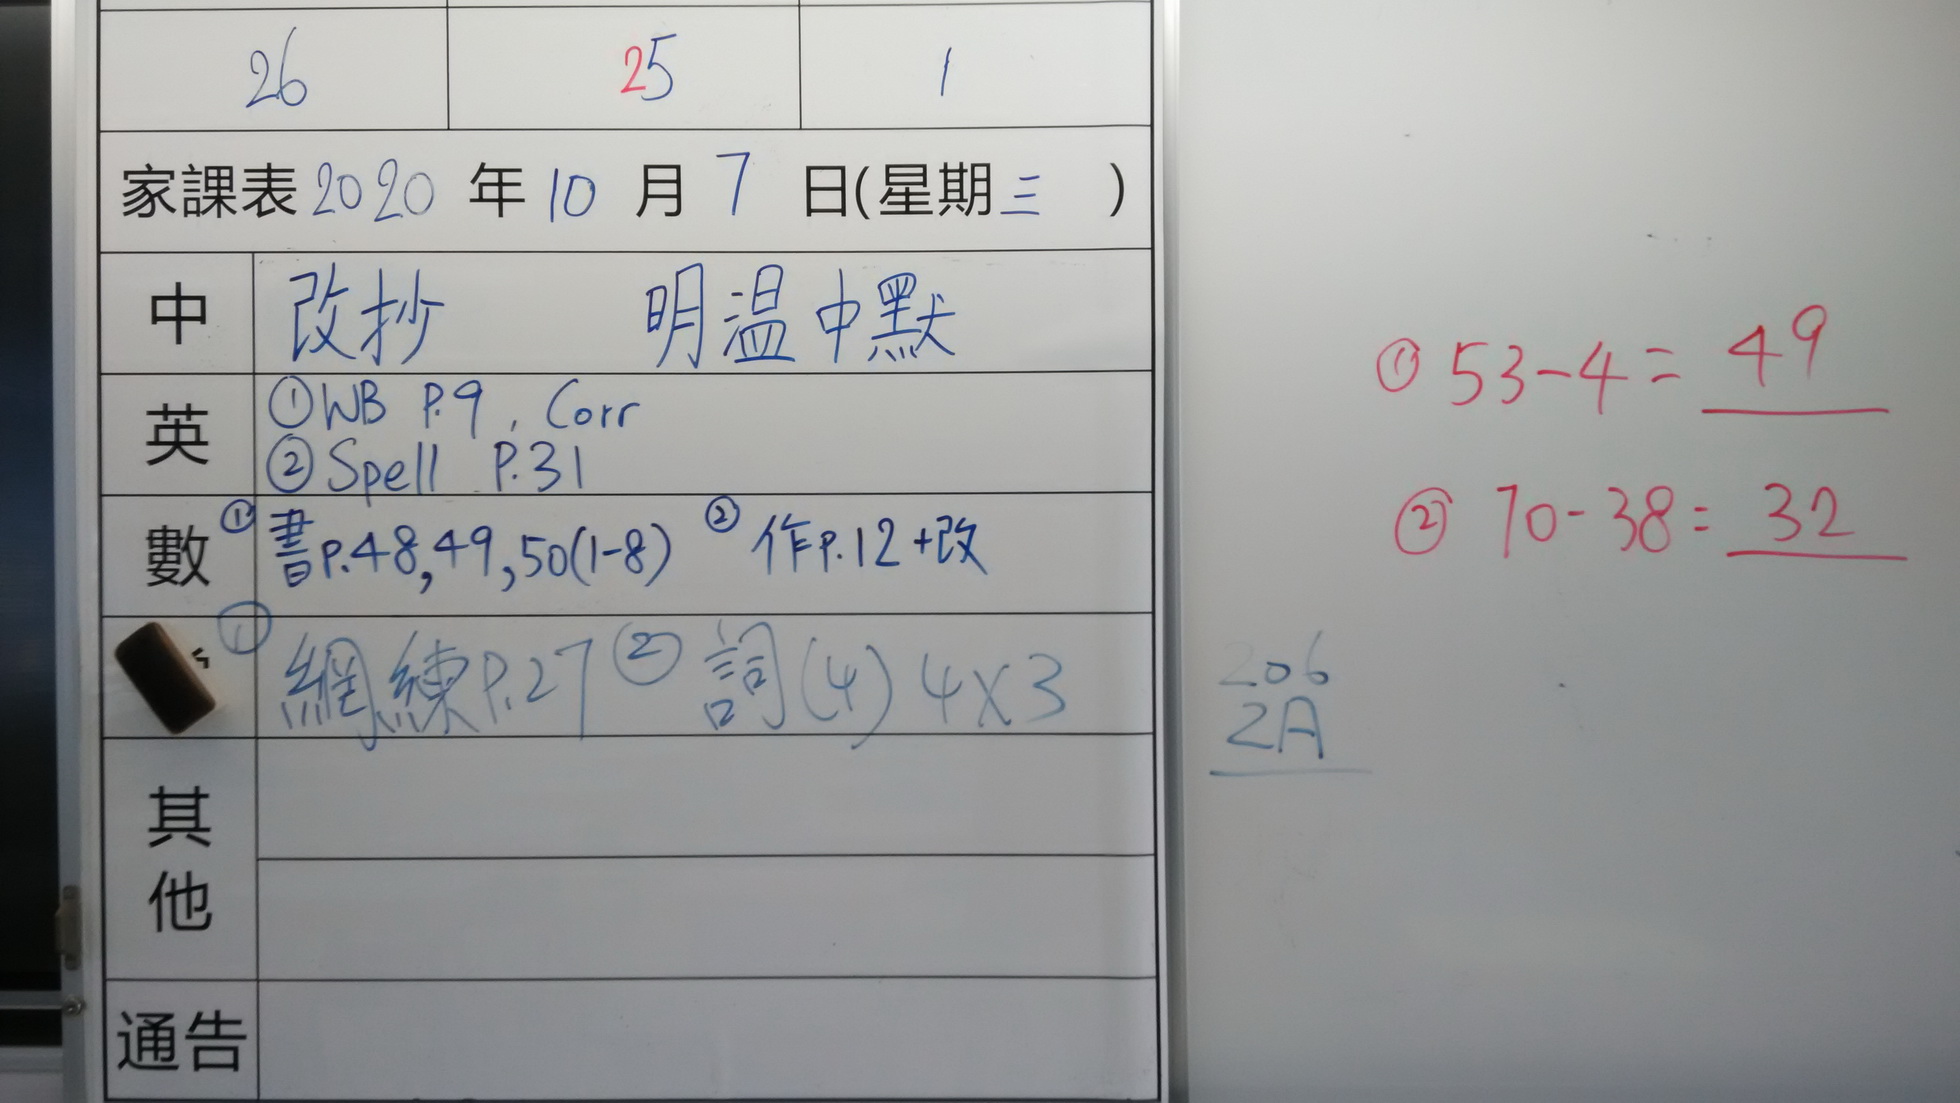 26 25 1
家課表 2020 年 10 月 7 日(星期三 )
中 改抄 明温中默
英 ①WB P.9, Corr
②Spell P.31
數 ①書P.48,49,50(1-8) ②作P.12+改
①網練P.27 ②詞(4)4×3
其他
通告
①53-4=49
②70-38=32
206
2A